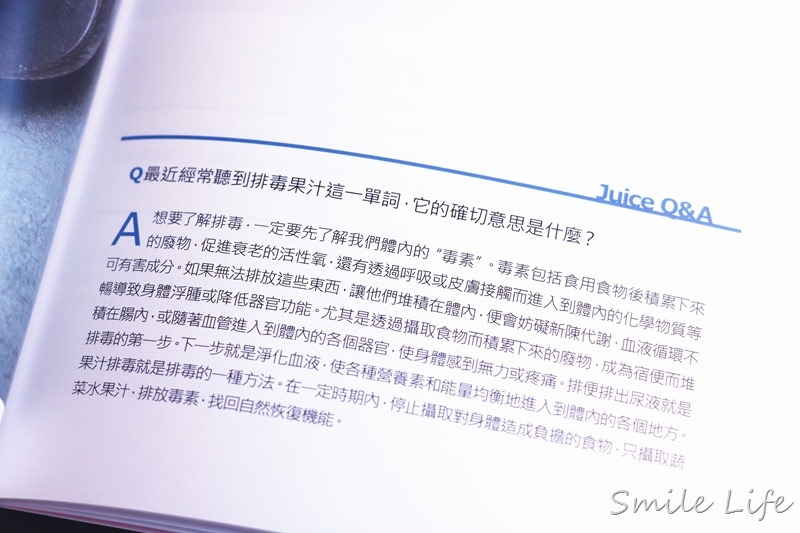 Juice Q&A
Q最近經常聽到排毒果汁這一單詞，它的確切意思是什麼？
A 想要了解排毒，一定要先了解我們體內的“毒素”。毒素包括食用食物後積累下來
的廢物，促進衰老的活性氧，還有透過呼吸或皮膚接觸而進入到體內的化學物質等
可有害成分。如果無法排放這些東西，讓他們堆積在體內，便會妨礙新陳代謝，血液循環不
暢導致身體浮腫或降低器官功能。尤其是透過攝取食物而積累下來的廢物，成為宿便而堆
積在腸內，或隨著血管進入到體內的各個器官，使身體感到無力或疼痛。排便排出尿液就是
排毒的第一步。下一步就是淨化血液，使各種營養素和能量均衡地進入到體內的各個地方。
果汁排毒就是排毒的一種方法。在一定時期內，停止攝取對身體造成負擔的食物，只攝取蔬
菜水果汁，排放毒素，找回自然恢復機能。
Smile Life